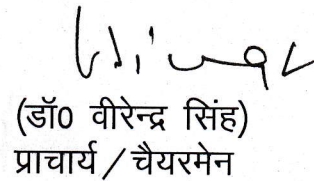 (डॉ0 वीरेन्द्र सिंह)
प्राचार्य / चैयरमेन